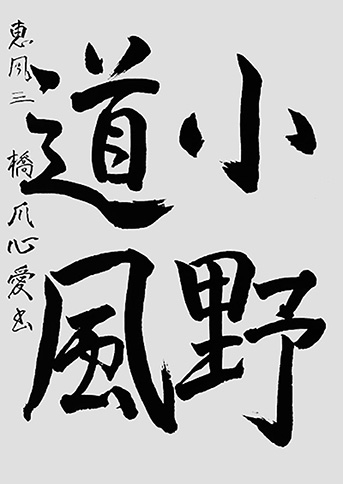 小野
道風
恵風三 橋爪心愛書